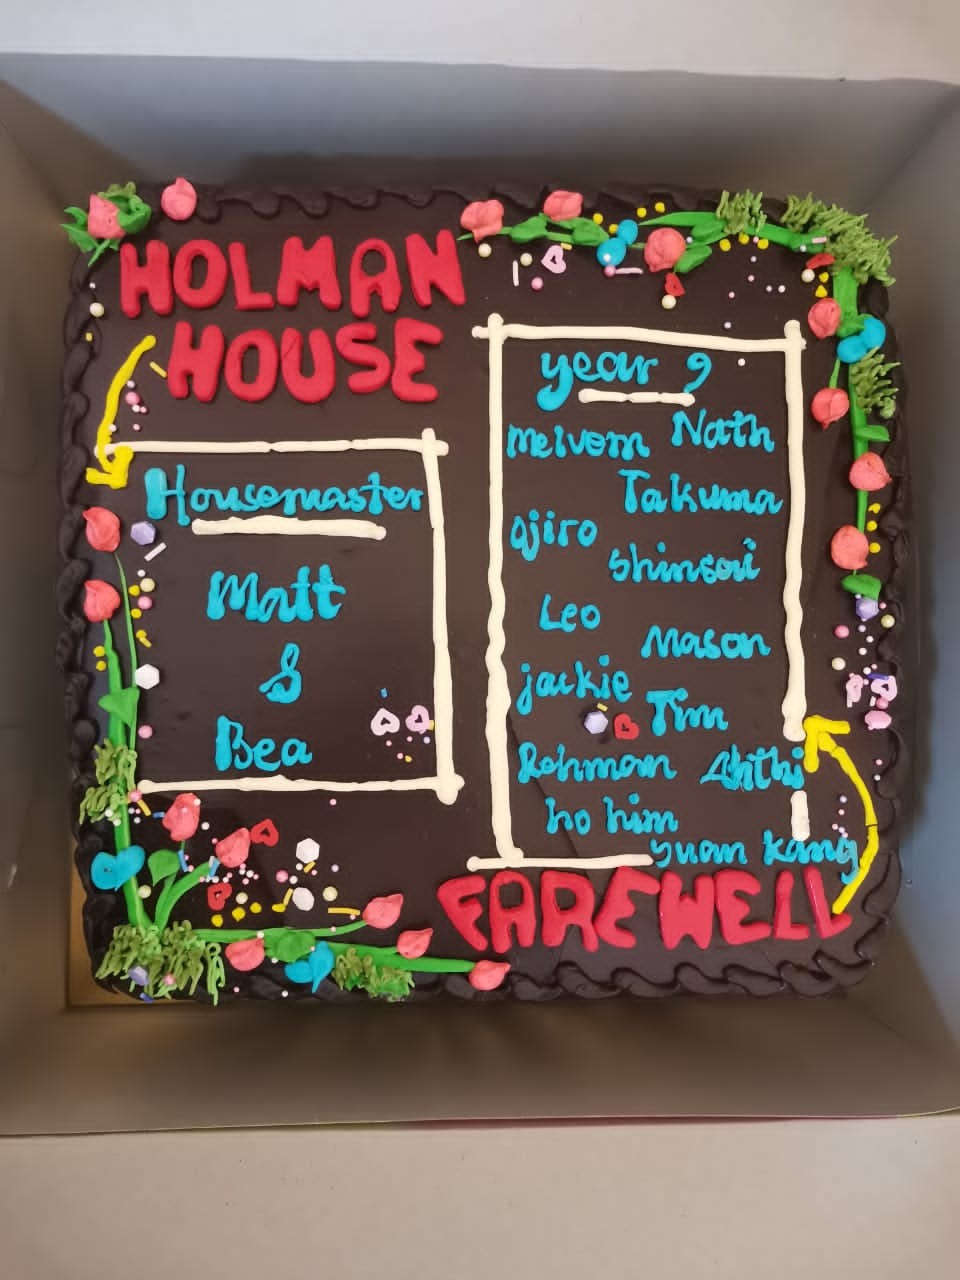 HOLMAN
HOUSE
Housemaster
Matt
&
Bea
year 9
Melvern Nath
Takuma
Ojiro
Shinsai
Leo
Mason
jackie
Tim
Rehman
ho him
yuan kang
FAREWELL